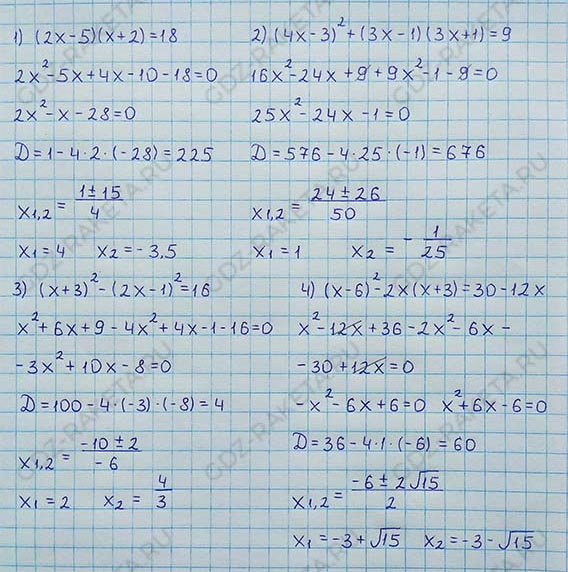 1) (2x-5)(x+2)=18
2x²-5x+4x-10-18=0
2x²-x-28=0
D=1-4·2·(-28)=225
x1,2=(1±15)/4
x1=4 x2=-3,5
2) (4x-3)²+(3x-1)(3x+1)=9
16x²-24x+9+9x²-1-9=0
25x²-24x-1=0
D=576-4·25·(-1)=676
x1,2=(24±26)/50
x1=1 x2=-1/25
3) (x+3)²-(2x-1)²=16
x²+6x+9-4x²+4x-1-16=0
-3x²+10x-8=0
D=100-4·(-3)·(-8)=4
x1,2=(-10±2)/-6
x1=2 x2=4/3
4) (x-6)²-2x(x+3)=30-12x
x²-12x+36-2x²-6x-
-30+12x=0
-x²-6x+6=0 x²+6x-6=0
D=36-4·1·(-6)=60
x1,2=(-6±2√15)/2
x1=-3+√15 x2=-3-√15
GDZ-RAKETA.RU